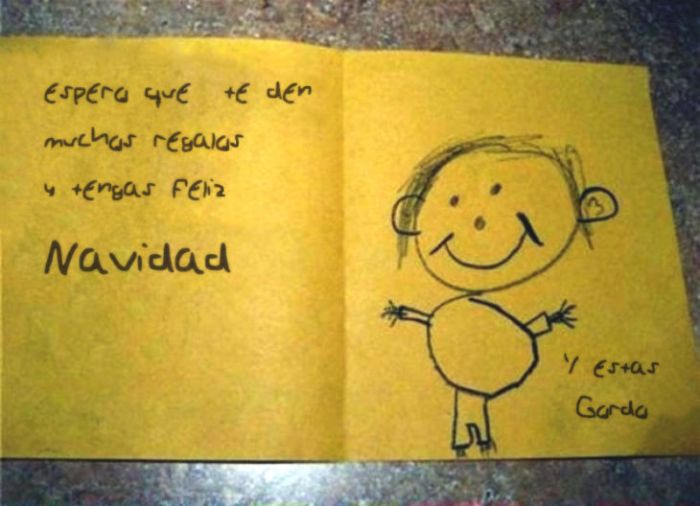 espero que te den
muchos regalos
y tengas feliz
Navidad
Y estas
Gorda